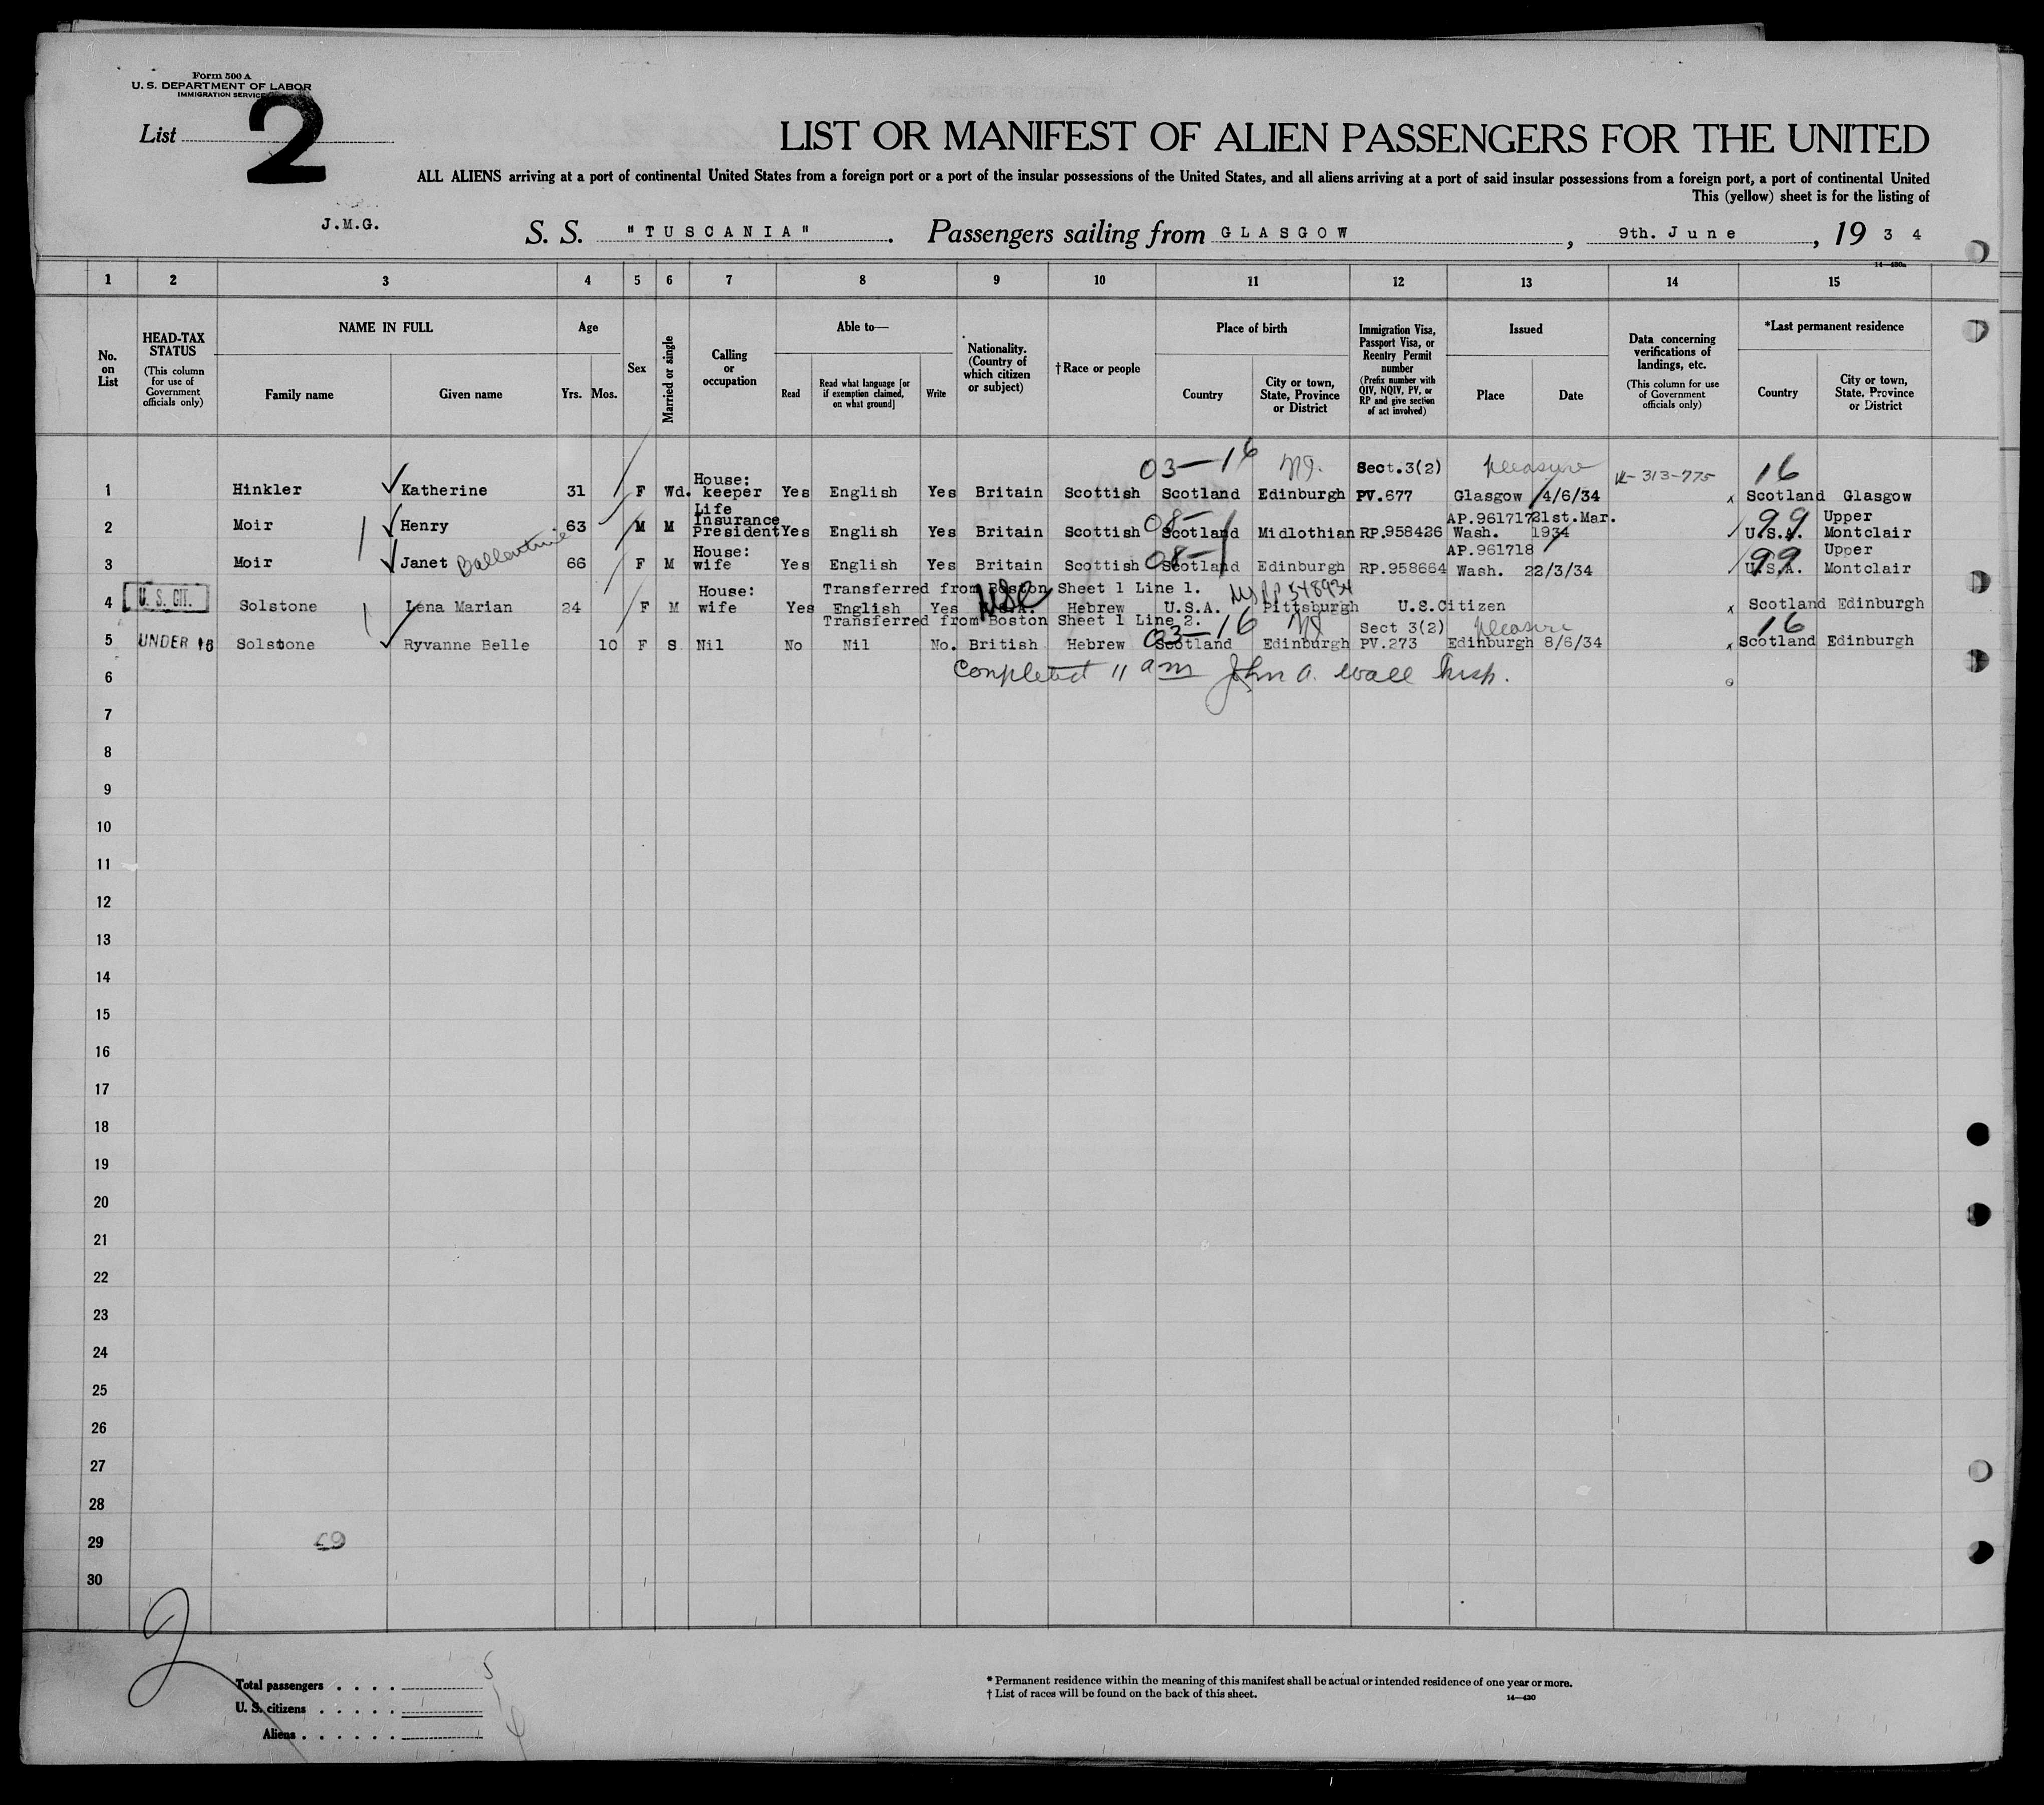 Form 500 A
U. S. DEPARTMENT OF LABOR
IMMIGRATION SERVICE
List 2
LIST OR MANIFEST OF ALIEN PASSENGERS FOR THE UNITED
ALL ALIENS arriving at a port of continental United States from a foreign port or a port of the insular possessions of the United States, and all aliens arriving at a port of said insular possessions from a foreign port, a port of continental United
This (yellow) sheet is for the listing of
J.M.G.
S. S. "TUSCANIA". Passengers sailing from GLASGOW, 9th. June, 19 3 4
14—430a
1 2 3 4 5 6 7 8 9 10 11 12 13 14 15
No. on List
HEAD-TAX STATUS (This column for use of Government officials only)
NAME IN FULL Family name Given name
Age Yrs. Mos.
Sex
Married or single
Calling or occupation
Able to— Read Read what language [or if exemption claimed, on what ground] Write
Nationality. (Country of which citizen or subject)
†Race or people
Place of birth Country City or town, State, Province or District
Immigration Visa, Passport Visa, or Reentry Permit number (Prefix number with QIV, NQIV, PV, or RP and give section of act involved)
Issued Place Date
Data concerning verifications of landings, etc. (This column for use of Government officials only)
*Last permanent residence Country City or town, State, Province or District
03—16 Sect.3(2) pleasure 313-775 16
1 Hinkler Katherine 31 F Wd. House: keeper Yes English Yes Britain Scottish Scotland Edinburgh PV.677 Glasgow 4/6/34 x Scotland Glasgow
2 Moir Henry 63 M M Life Insurance President Yes English Yes Britain Scottish 08— Scotland Midlothian RP.958426 AP.961717 Wash. 21st.Mar. 1934 99 U.S.A. Upper Montclair
3 Moir Janet Ballantine 66 F M House: wife Yes English Yes Britain Scottish 08— Scotland Edinburgh RP.958664 AP.961718 Wash. 22/3/34 99 U.S.A. Upper Montclair
Transferred from Boston Sheet 1 Line 1.
4 U. S. CIT. Solstone Lena Marian 24 F M House: wife Yes English Yes U.S.A. Hebrew U.S.A. Pittsburgh U.S.Citizen x Scotland Edinburgh
Transferred from Boston Sheet 1 Line 2. 03—16 Sect 3(2) pleasure 16
5 UNDER 16 Solstone Ryvanne Belle 10 F S Nil No Nil No. British Hebrew Scotland Edinburgh PV.273 Edinburgh 8/6/34 x Scotland Edinburgh
6 Completed 11 am John A. Wall Insp.
7
8
9
10
11
12
13
14
15
16
17
18
19
20
21
22
23
24
25
26
27
28
29
30
2
Total passengers . . . . 5
U. S. citizens . . . . . 1
Aliens . . . . . . 4
* Permanent residence within the meaning of this manifest shall be actual or intended residence of one year or more.
† List of races will be found on the back of this sheet.
14—430